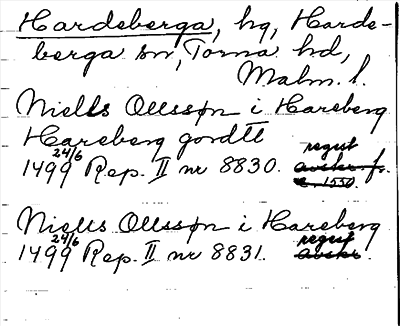 Hardeberga, hg, Harde-
berga sn, Torna hd,
Malm. l.
Niells Ollssøn i Hareberg
Hareberg gordtt
regest
1499 24/6 Rep. II nr 8830. avskr. fr.
c. 1550.
Niells Ollssøn i Hareberg
regest
1499 24/6 Rep. II nr 8831. avskr.